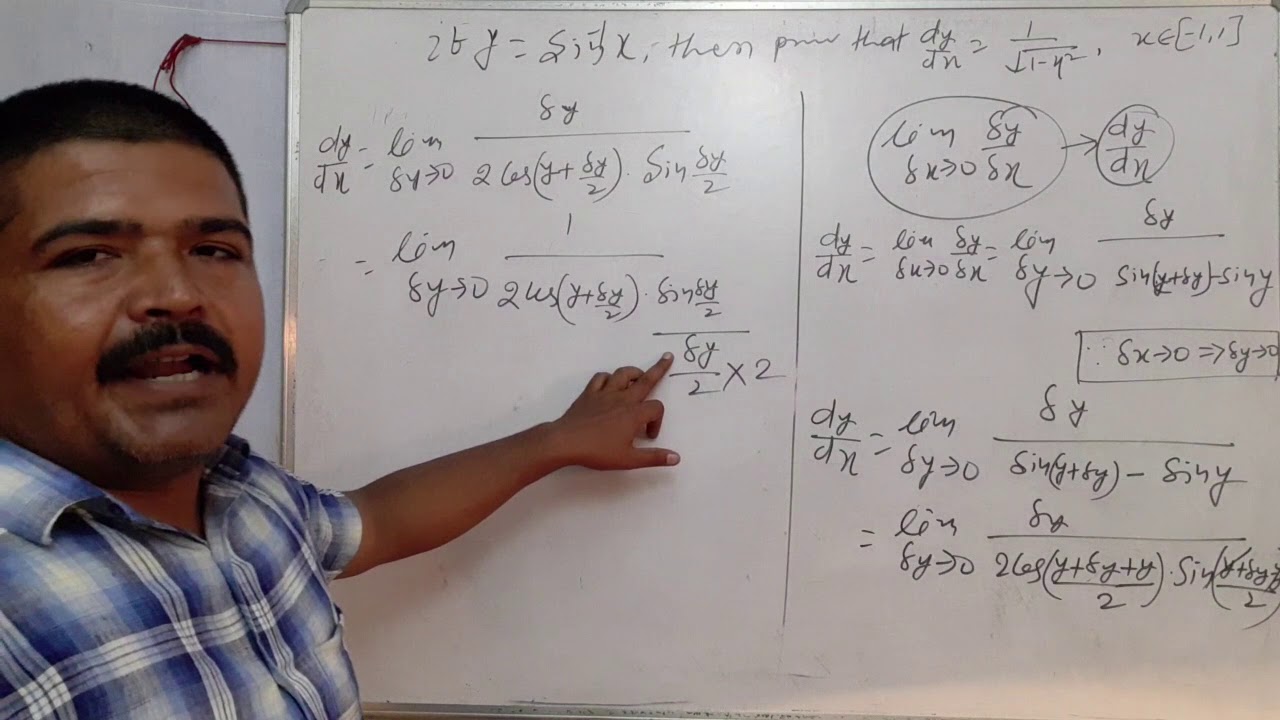 if y = Sin⁻¹x, then prove that dy/dx = 1/√(1-x²), x∈[-1,1]
dy/dx = lim δy→0 δy/(2 Cos(y+δy/2) · Sin δy/2)
= lim δy→0 1/(2 Cos(y+δy/2) · Sin δy/2 / (δy/2 × 2))
lim δx→0 δy/δx → dy/dx
dy/dx = lim δx→0 δy/δx = lim δy→0 δy/(Sin(y+δy)-Sin y)
∵ δx→0 ⇒ δy→0
dy/dx = lim δy→0 δy/(Sin(y+δy) - Sin y)
= lim δy→0 δy/(2 Cos((y+δy+y)/2) · Sin((y+δy-y)/2))